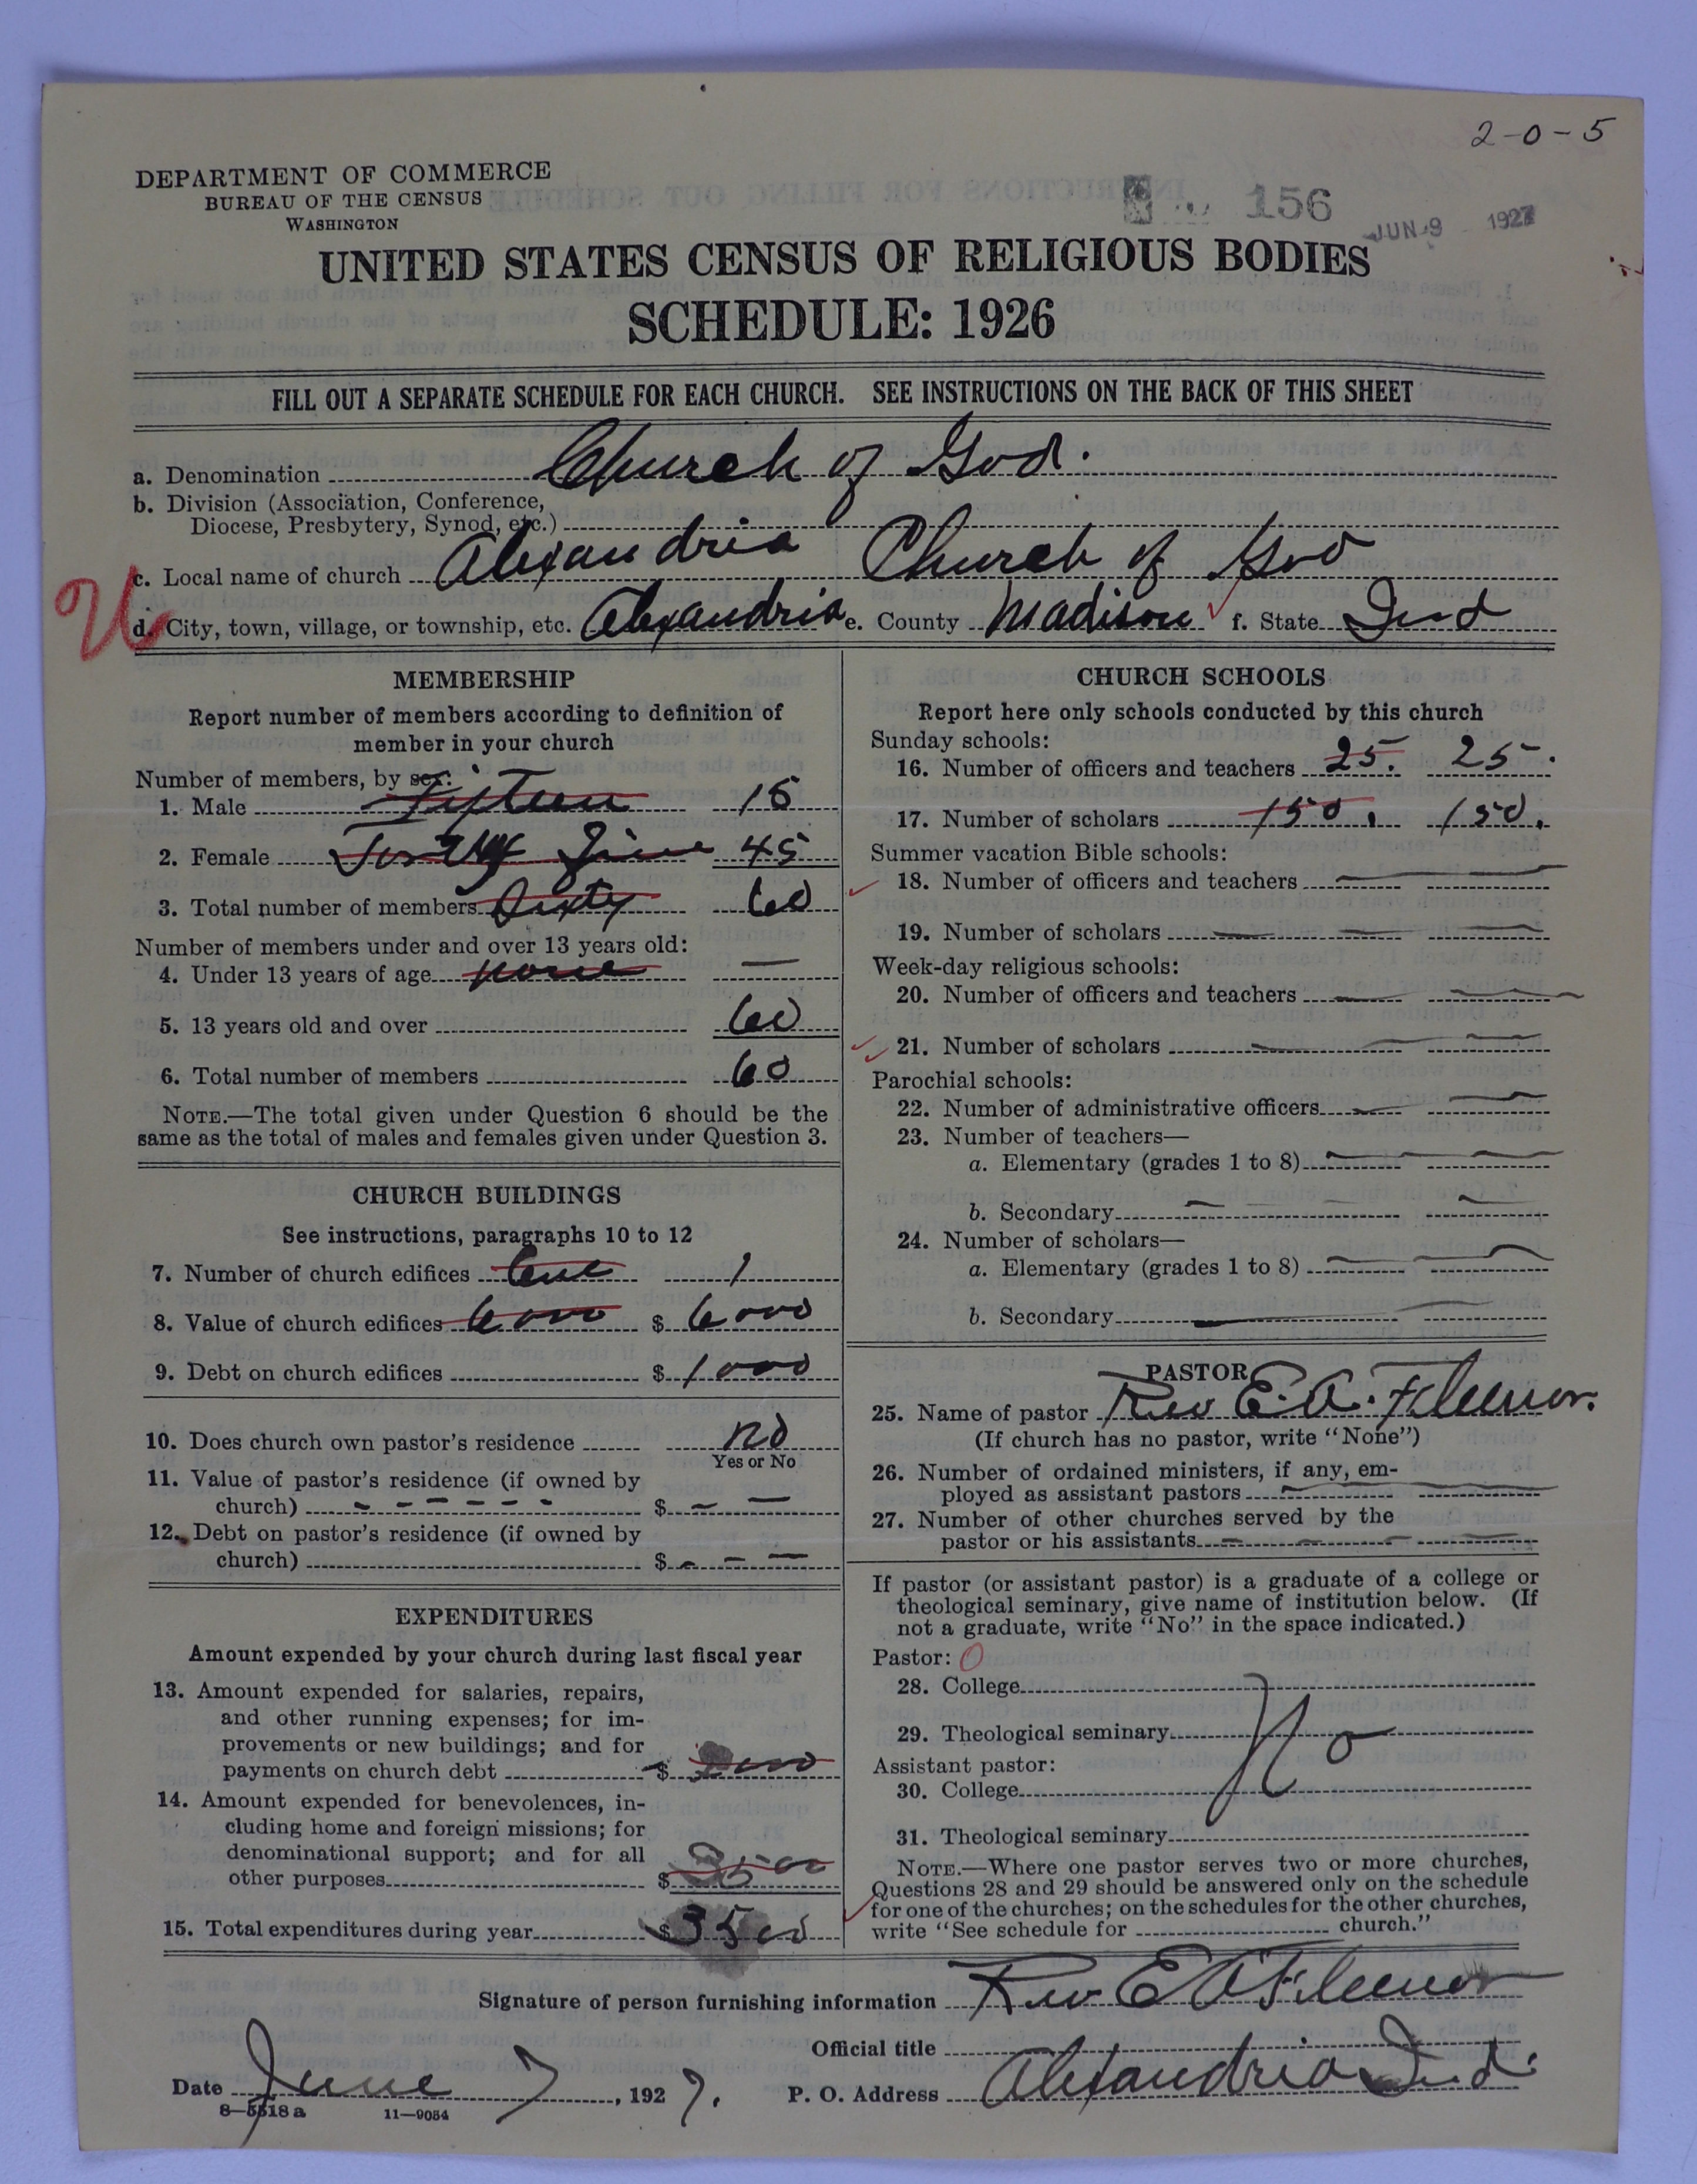 2-0-5
DEPARTMENT OF COMMERCE
BUREAU OF THE CENSUS
WASHINGTON
156
JUN 9 1927
UNITED STATES CENSUS OF RELIGIOUS BODIES
SCHEDULE: 1926
FILL OUT A SEPARATE SCHEDULE FOR EACH CHURCH. SEE INSTRUCTIONS ON THE BACK OF THIS SHEET
a. Denomination Church of God.
b. Division (Association, Conference,
Diocese, Presbytery, Synod, etc.)
c. Local name of church Alexandria Church of God
d. City, town, village, or township, etc. Alexandria e. County Madison f. State Ind
MEMBERSHIP
Report number of members according to definition of
member in your church
Number of members, by sex:
1. Male Fifteen 15
2. Female Forty Five 45
3. Total number of members Sixty 60
Number of members under and over 13 years old:
4. Under 13 years of age none —
5. 13 years old and over 60
6. Total number of members 60
NOTE.—The total given under Question 6 should be the
same as the total of males and females given under Question 3.
CHURCH BUILDINGS
See instructions, paragraphs 10 to 12
7. Number of church edifices One 1
8. Value of church edifices 6000 $ 6000
9. Debt on church edifices $ 1000
10. Does church own pastor's residence no
Yes or No
11. Value of pastor's residence (if owned by
church) - - - - - - $ - -
12. Debt on pastor's residence (if owned by
church) $ - - -
EXPENDITURES
Amount expended by your church during last fiscal year
13. Amount expended for salaries, repairs,
and other running expenses; for im-
provements or new buildings; and for
payments on church debt $
14. Amount expended for benevolences, in-
cluding home and foreign missions; for
denominational support; and for all
other purposes $ 3500
15. Total expenditures during year $ 3500
CHURCH SCHOOLS
Report here only schools conducted by this church
Sunday schools:
16. Number of officers and teachers 25. 25.
17. Number of scholars 150. 150.
Summer vacation Bible schools:
18. Number of officers and teachers — —
19. Number of scholars — — —
Week-day religious schools:
20. Number of officers and teachers — —
21. Number of scholars — — —
Parochial schools:
22. Number of administrative officers — —
23. Number of teachers—
a. Elementary (grades 1 to 8) — —
b. Secondary — —
24. Number of scholars—
a. Elementary (grades 1 to 8) — —
b. Secondary — —
PASTOR
25. Name of pastor Rev E. A. Fleenor.
(If church has no pastor, write "None")
26. Number of ordained ministers, if any, em-
ployed as assistant pastors — —
27. Number of other churches served by the
pastor or his assistants — — — —
If pastor (or assistant pastor) is a graduate of a college or
theological seminary, give name of institution below. (If
not a graduate, write "No" in the space indicated.)
Pastor: 0
28. College
29. Theological seminary No
Assistant pastor:
30. College
31. Theological seminary
NOTE.—Where one pastor serves two or more churches,
Questions 28 and 29 should be answered only on the schedule
for one of the churches; on the schedules for the other churches,
write "See schedule for church."
Signature of person furnishing information Rev E A Fleenor
Official title
Date June 7, 1927. P. O. Address Alexandria Ind.
8—5518 a 11—9054